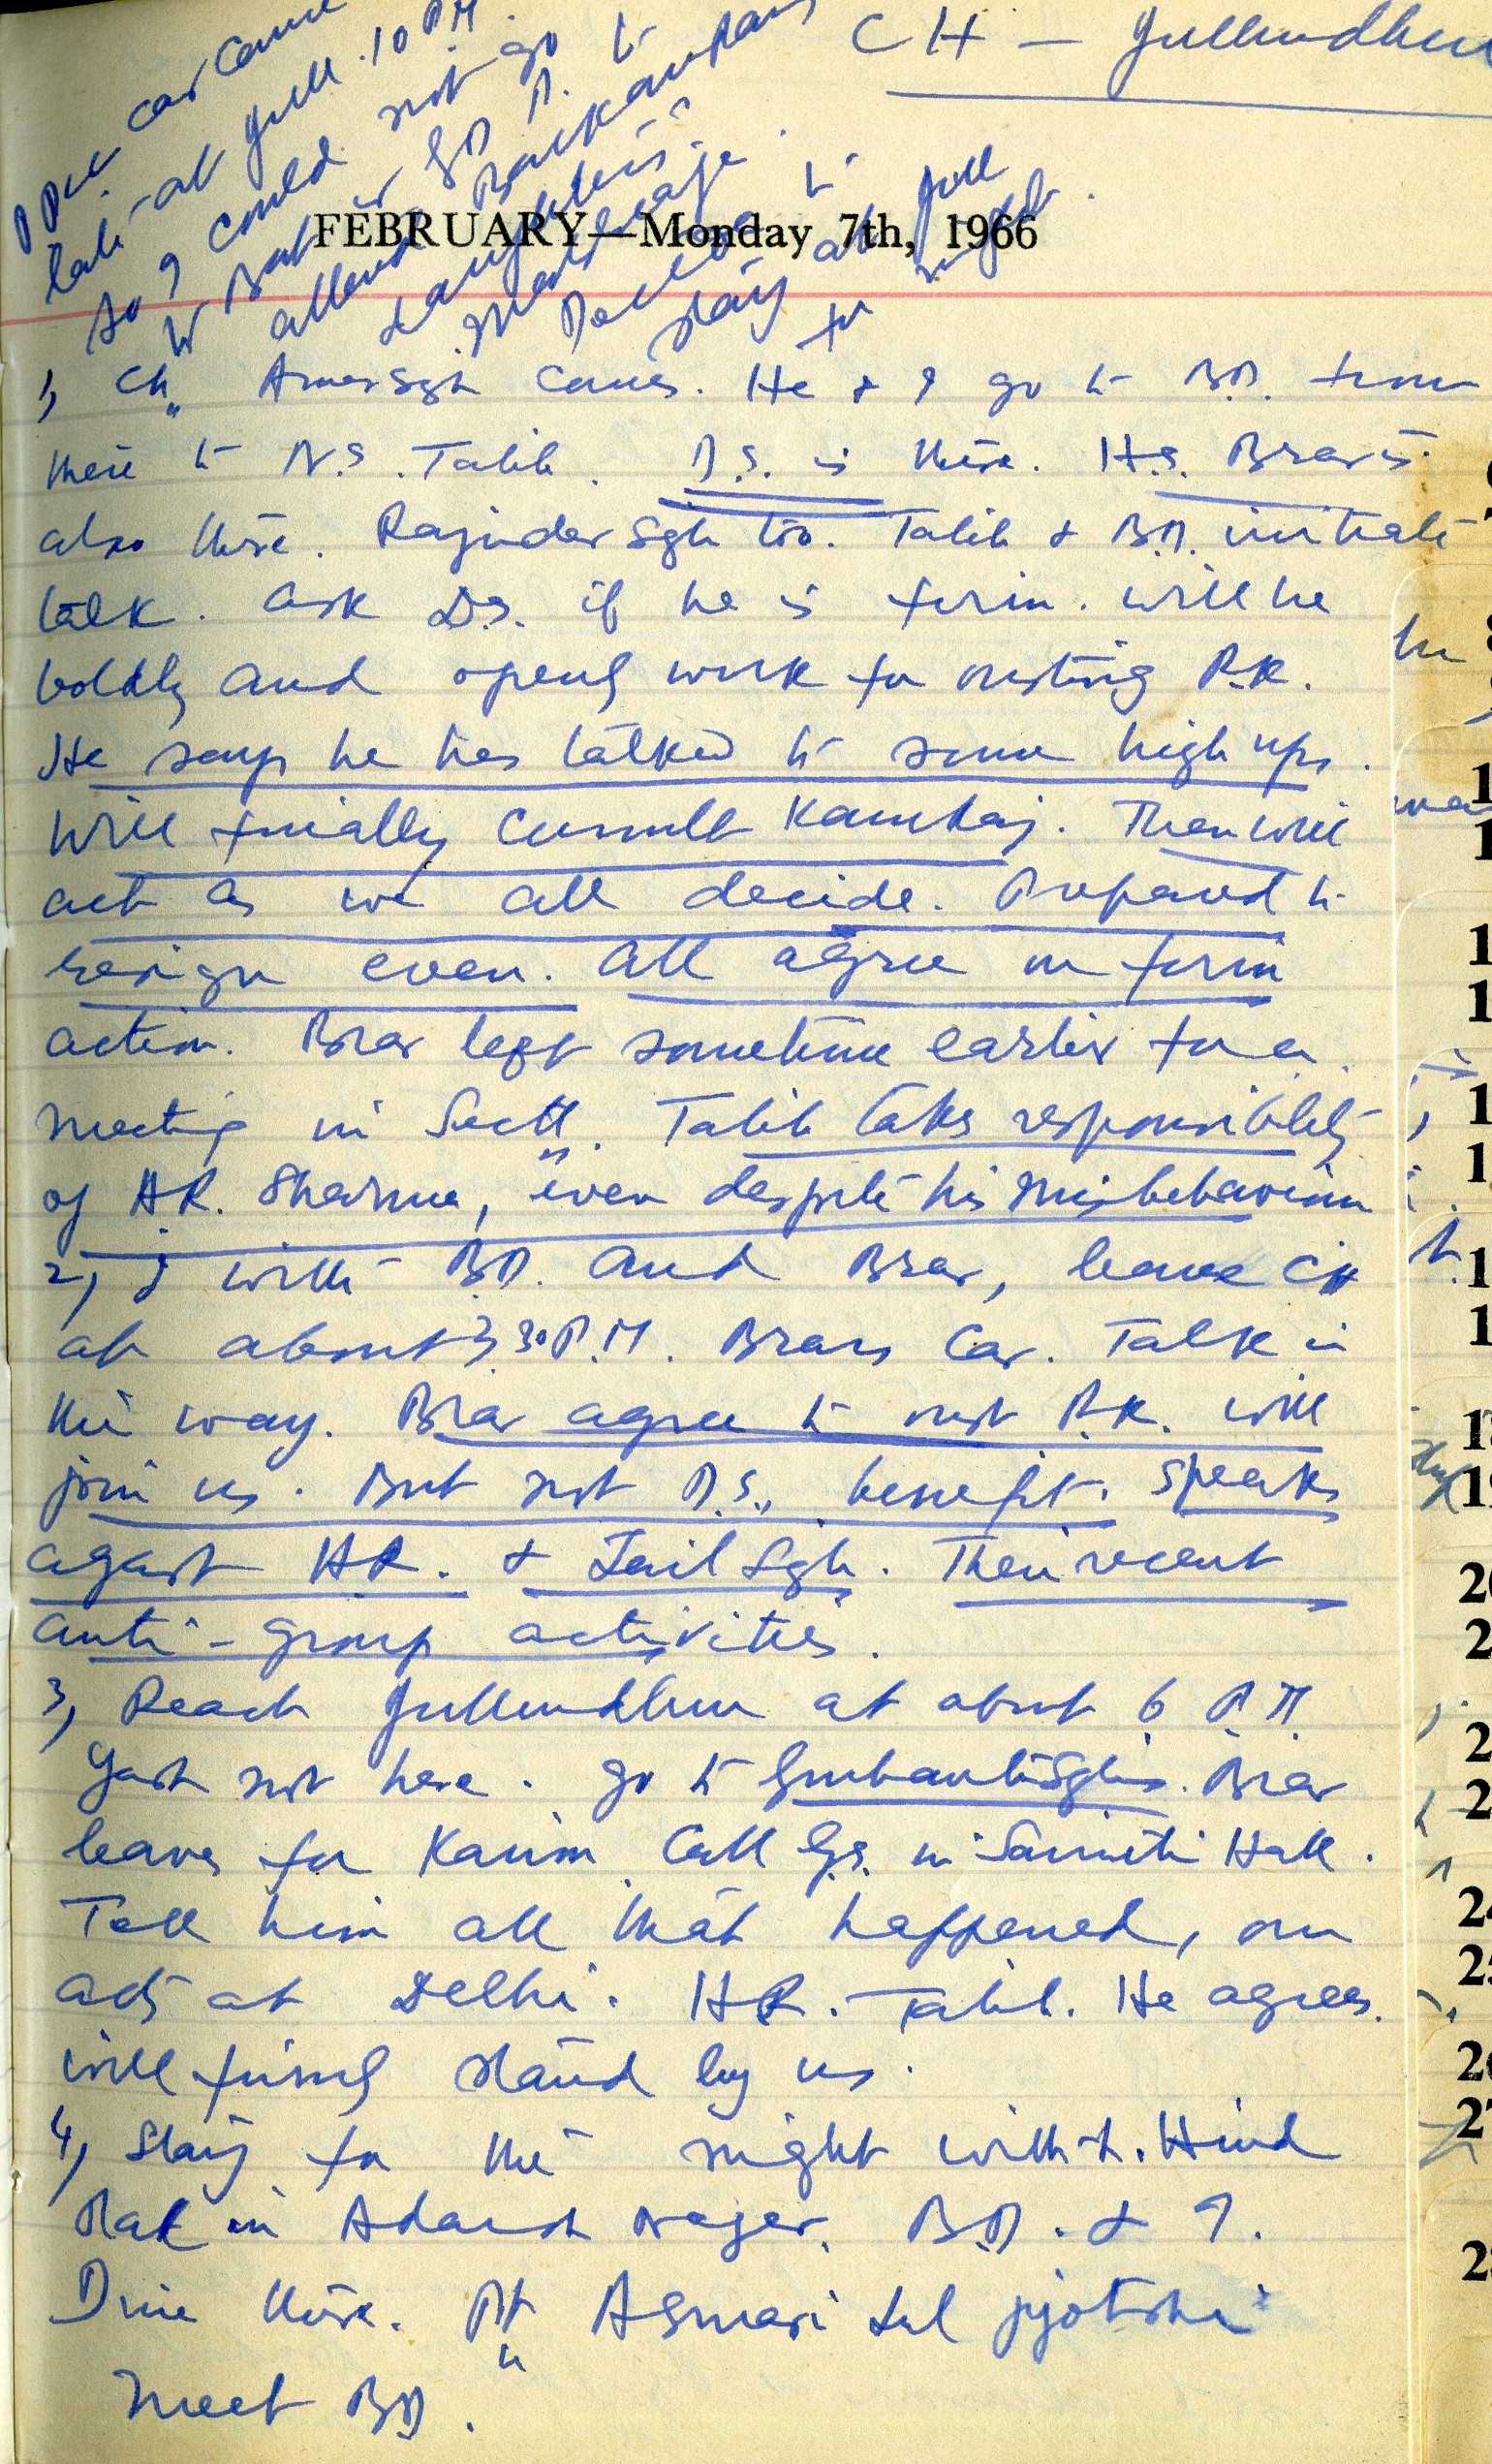 CH — Jullundhur
car came
late at Jull. 10 P.M
so I could not go to
attend
daughter's
marriage
stay at Jull
for night.
FEBRUARY—Monday 7th, 1966
1, Ch. Amar Sgh comes. He & I go to B.D. from
there to N.S. Talib. D.S. is there. H.S. Brar is
also there. Rajinder Sgh too. Talib & B.D. initiate
talk. Ask D.S. if he is firm. Will he
boldly and openly work for ousting R.K.
He says he has talked to some high ups.
Will finally consult Kamraj. Then will
act as we all decide. Prepared to
resign even. All agree on firm
action. Brar left sometime earlier for a
meeting in Sectt. Talib takes responsibility
of H.R. Sharma, even despite his misbehaviour
2, I with B.D. and Brar, leave CH
at about 3.30 P.M. Brars Car. Talk in
the way. Brar agree to oust R.K. will
join us. But not D.S., benefit. Speaks
against H.R. & Zail Sgh. Their recent
anti-group activities.
3, Reach Jullundhur at about 6 P.M.
Yash not here. Go to Gurbanta Sgh's. Brar
leaves for Call G.S. in Samiti Hall.
Tell him all that happened, our
acts at Delhi. H.R. Talib. He agrees.
will firmly stand by us.
4, Stay for the night with L. Hind
Pal in Adarsh Nagar. B.D. & I.
Dine there. Pt. Lal Jyotshi
meet B.D.